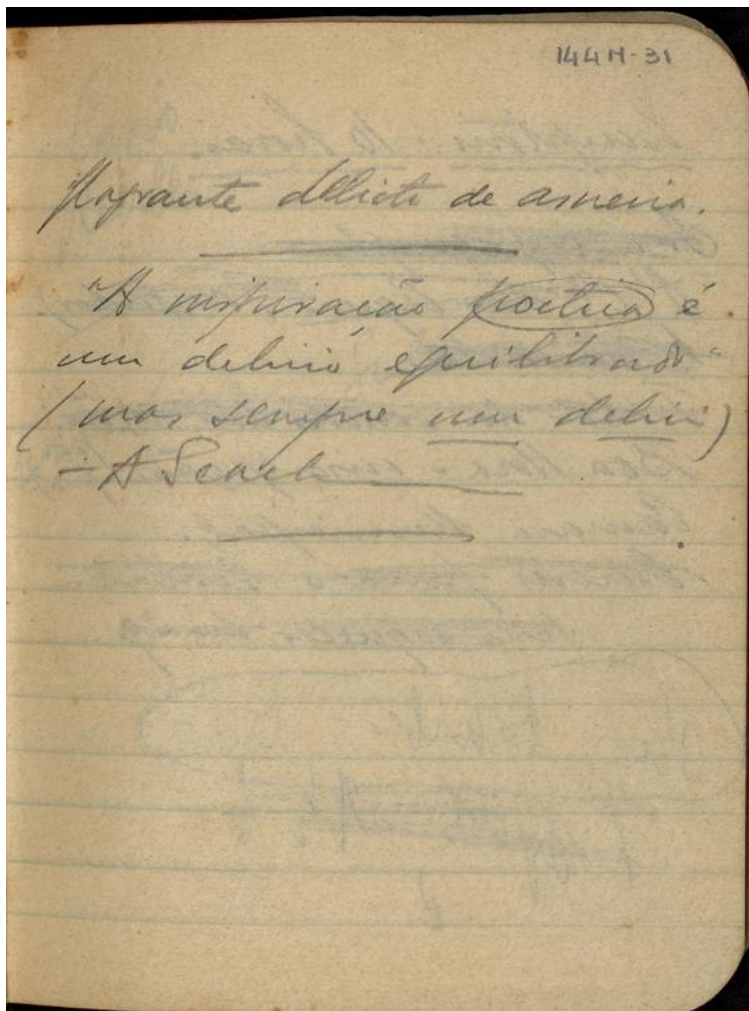 144N-31
flagrante delicto de asneira.
"A inspiração poetica é
um delirio equilibrado"
(mas sempre um delirio)
– A Search